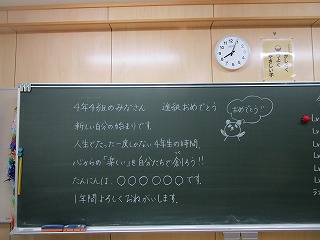 4年4組のみなさん 進級おめでとう
おめでとう!!
新しい自分の始まりです。
人生でたった一度しかない4年生の1時間。
心からの「楽しい」を自分たちで創ろう!!
たんにんは、○○○○○○です。
1年間よろしくおねがいします。